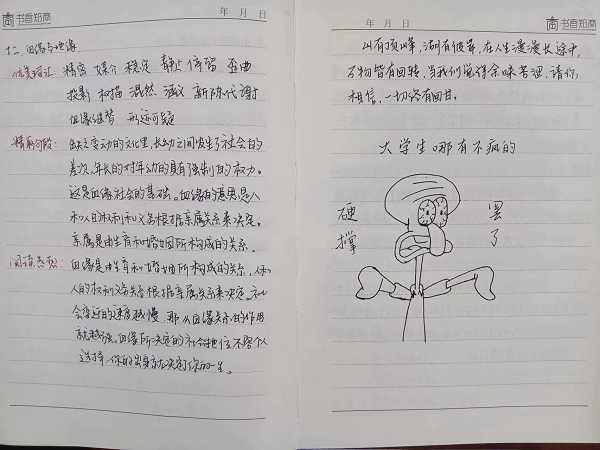 书香知商
年 月 日
十二、血缘与地缘
优美词汇: 精密 媒介 稳定 静止 停留 歪曲
投影 扫描 混然 涵义 新陈代谢
血缘继替 形迹可疑
精彩句段: 缺乏变动的文化里,长幼之间发生了社会的
差次,年长的对年幼的具有强制的权力。
这是血缘社会的基础。血缘的意思是人
和人的权利和义务根据亲属关系来决定。
亲属是由生育和婚姻所构成的关系。
阅读感想: 血缘是由生育和婚姻所构成的关系,人和
人的权利义务根据亲属关系来决定。社
会变迁的速度越慢 那么血缘关系的作用
就越强。血缘所决定的社会地位不容个人
选择,你的出身就决定了你的一生。
年 月 日
书香知商
山有顶峰,湖有彼岸,在人生漫漫长途中,
万物皆有回转,当我们觉得余味苦涩,请你
相信,一切终有回甘。
大学生哪有不疯的
硬撑
罢了